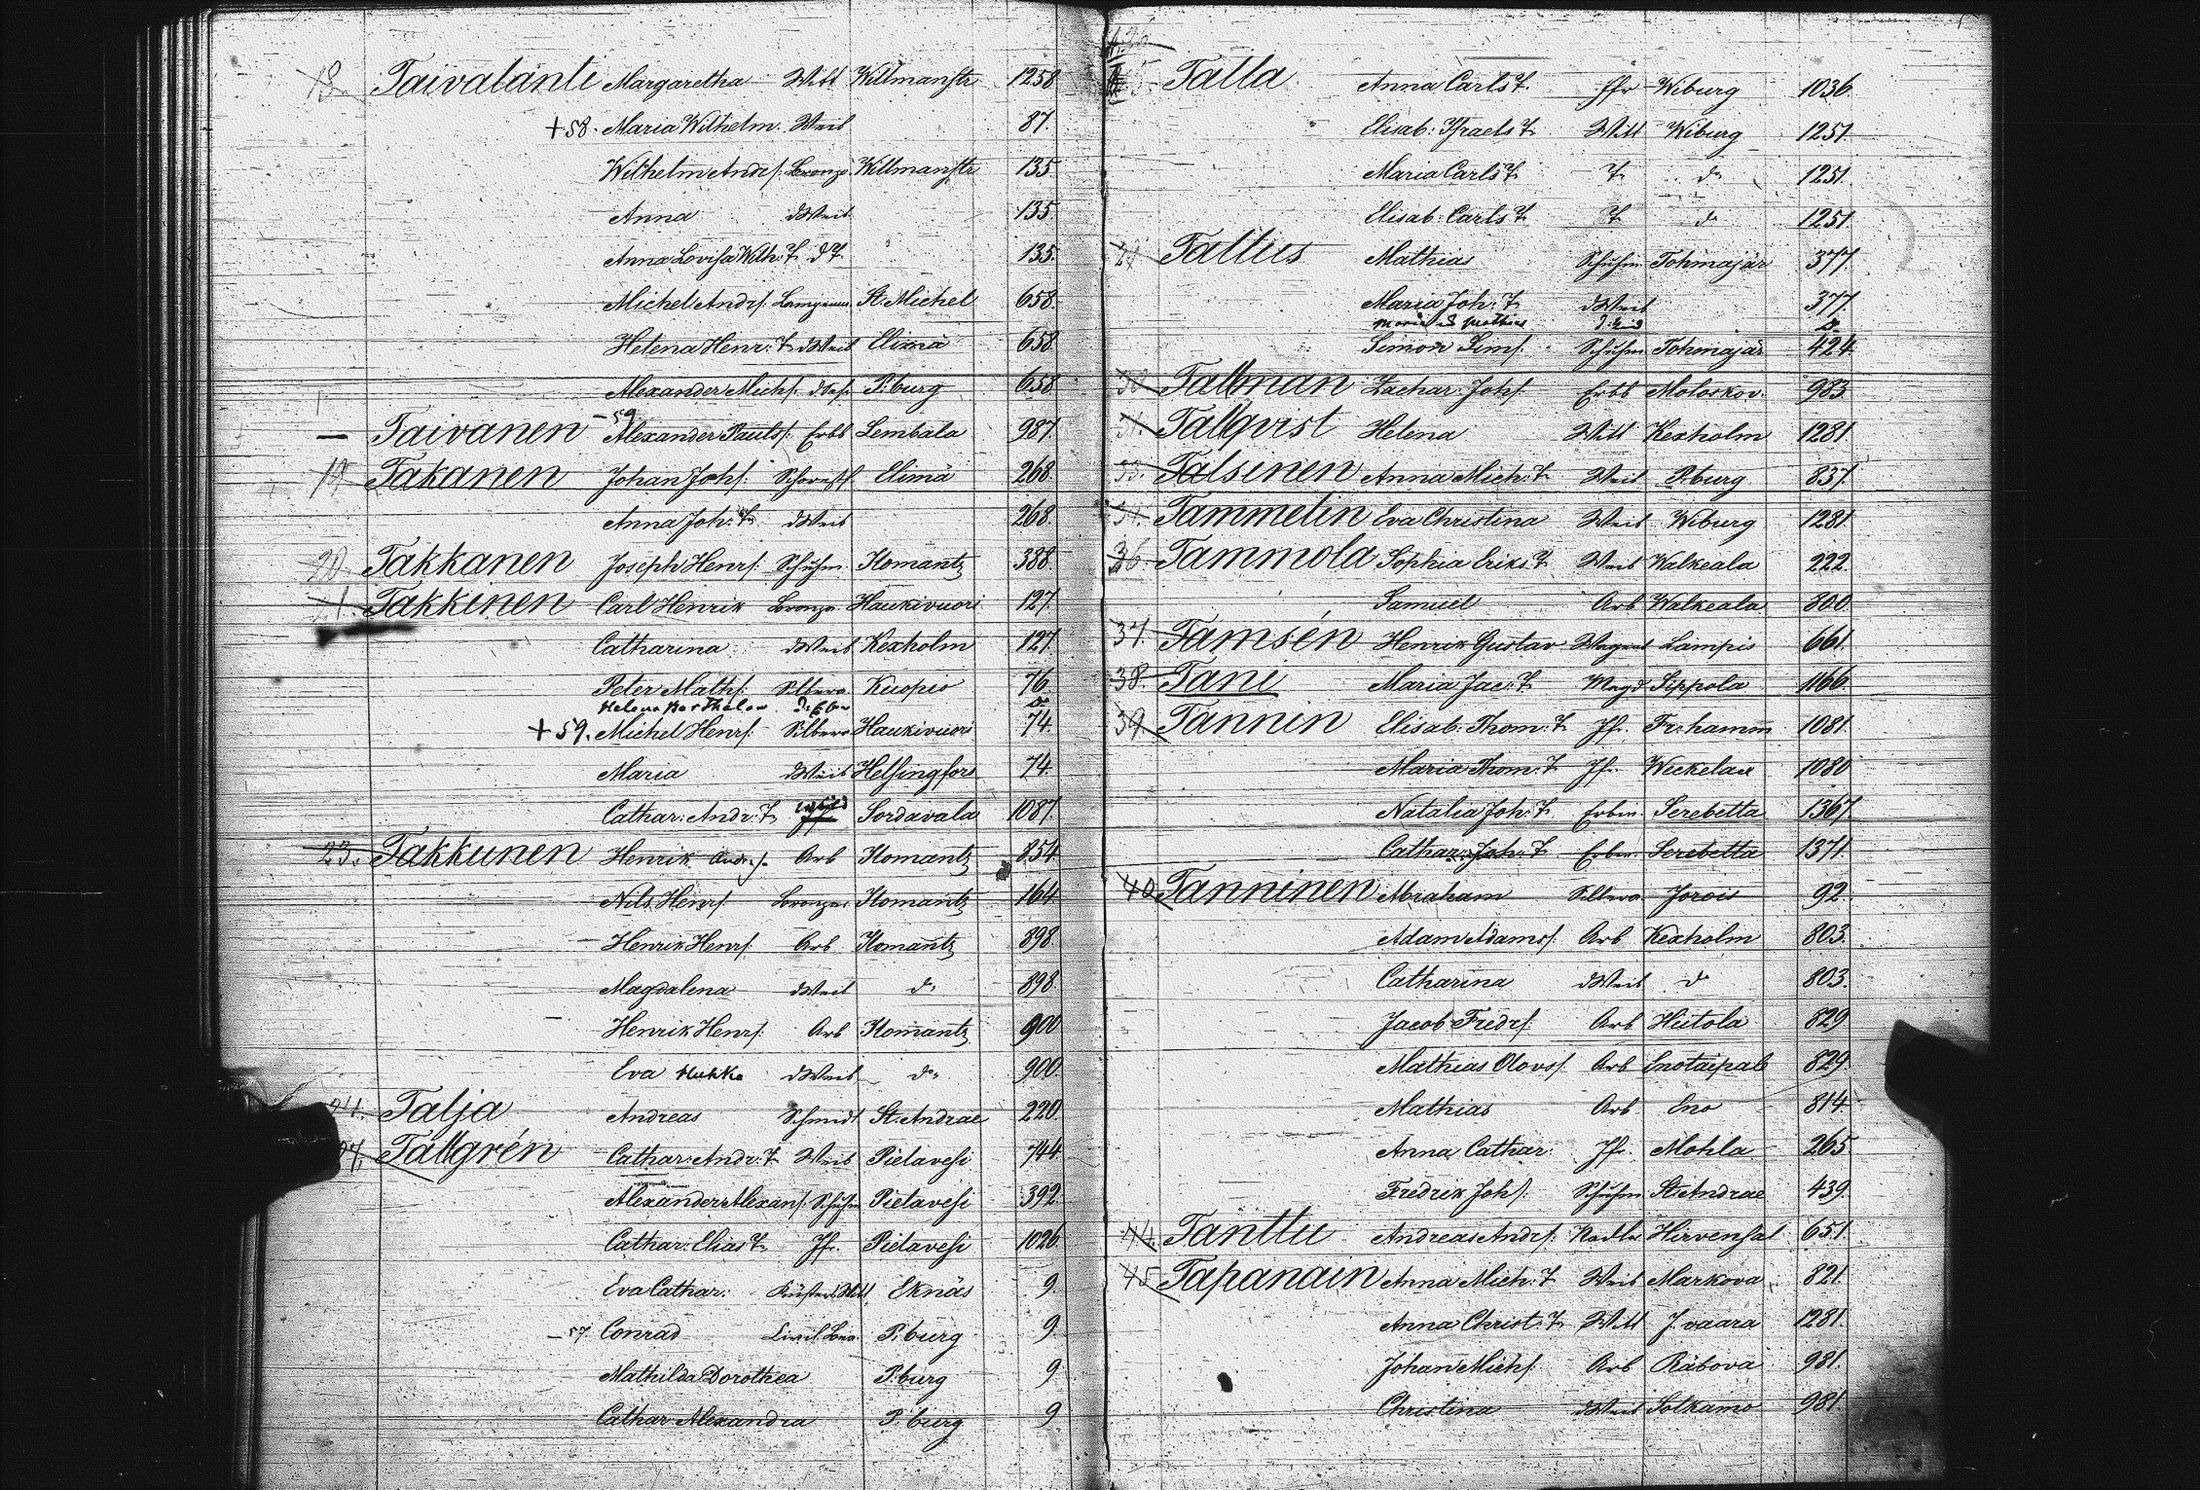 18. Taivalanti Margaretha Witt Willmanstr 1258
+58. Maria Wilhelm. Weib 87.
Wilhelm Andrs. Bronze Willmanstr 135
Anna dWeib 135.
Anna Lovisa Wilh: T. dT. 135.
Michel Andrs. St. Michel 658.
Helena Henr: T. dWeib Elimä 658
Alexander Michs. dos. P.burg 658
-59
— Taivanen Alexander Pauls. Erbb Lembala 987.
19. Takanen Johan Johs. Elimä 268
Anna Joh: T. dWeib 268.
20 Takkanen Joseph Henrs. Schuhm. Ilomantz 388.
21. Takkinen Carl Henrik Bronze. Haukivuori 127
Catharina dWeib Kexholm 127.
Peter Maths. Silbera Kuopio 76
Helena Barthalow
+59. Michel Henrs. Silbera Haukivuori 74.
Maria dWeib Helsingfors 74.
Cathar: Andr: T. Sordavala 1087.
23. Takkunen Henrik Andrs. Arb Ilomantz 854
Nils Henrs. Bronzea. Ilomantz 164
Henrik Henrs. Arb Ilomantz 898.
Magdalena dWeib do 898.
Henrik Henrs. Arb Ilomantz 900
Eva Mukka dWeib do 900
24. Talja Andreas Schmidt St. Andrae 220
27. Tallgrén Cathar: Andr: T. Weib Pielavesi 744
Alexander Alexans. Schuhm Pielavesi 392
Cathar: Elias T. Jfr. Pielavesi 1026.
Eva Cathar: Küsters Witt Eknäs 9.
-57 Conrad P.burg 9
Mathilda Dorothea P.burg 9
Cathar. Alexandra P.burg 9
Talla Anna Carls T. Jfr Wiburg 1036
Elisab: Israels T. Witt Wiburg 1251
Maria Carls T. T. do 1251.
Elisab: Carls T. T. do 1251
Tallus Mathias Schuhm. Tohmajär 377.
Maria Joh: T. dWeib 377.
Simon Sims. Schuhm Tohmajär 424
Tallman Zachar: Johs. Erbb Moloskov. 983
31. Tallqvist Helena Witt Kexholm 1281
33. Talsinen Anna Mich: T. Weib P.burg 837.
34. Tammelin Eva Christina Weib Wiburg 1281
36 Tammola Sophia Eriks T. Weib Walkeala 222.
Samuel Arb Walkeala 800
37. Tamsén Henrik Gustav Lampis 661.
38. Tani Maria Jac: T. Magd Sippola 1166
39. Tannin Elisab: Thom: T. Jfr. Fr:hamm 1081
Maria Thom: T. Jfr. Weckelax 1080
Natalia Joh: T. Erbin. Serebetta 1367.
Cathar: Joh: T. Erbin. Serebetta 1371.
40. Tanninen Abraham Silbera Jorois 92.
Adam Adams. Arb Kexholm 803.
Catharina dWeib do 803.
Jacob Fredrs. Arb Hiitola 829
Mathias Olovs. Arb Enotaipale 829.
Mathias Arb Eno 814
Anna Cathar: Jfr. Mohla 265
Fredrik Johs. Schuhm St. Andrae 439
44. Tanttu Andreas Andrs. Nadler Hirvensal 651
45 Tapanain Anna Mich: T. Weib Markova 821.
Anna Christ: T. Witt J.vaara 1281.
Johan Michs. Arb Räbova 981.
Christina dWeib Sotkamo 981.